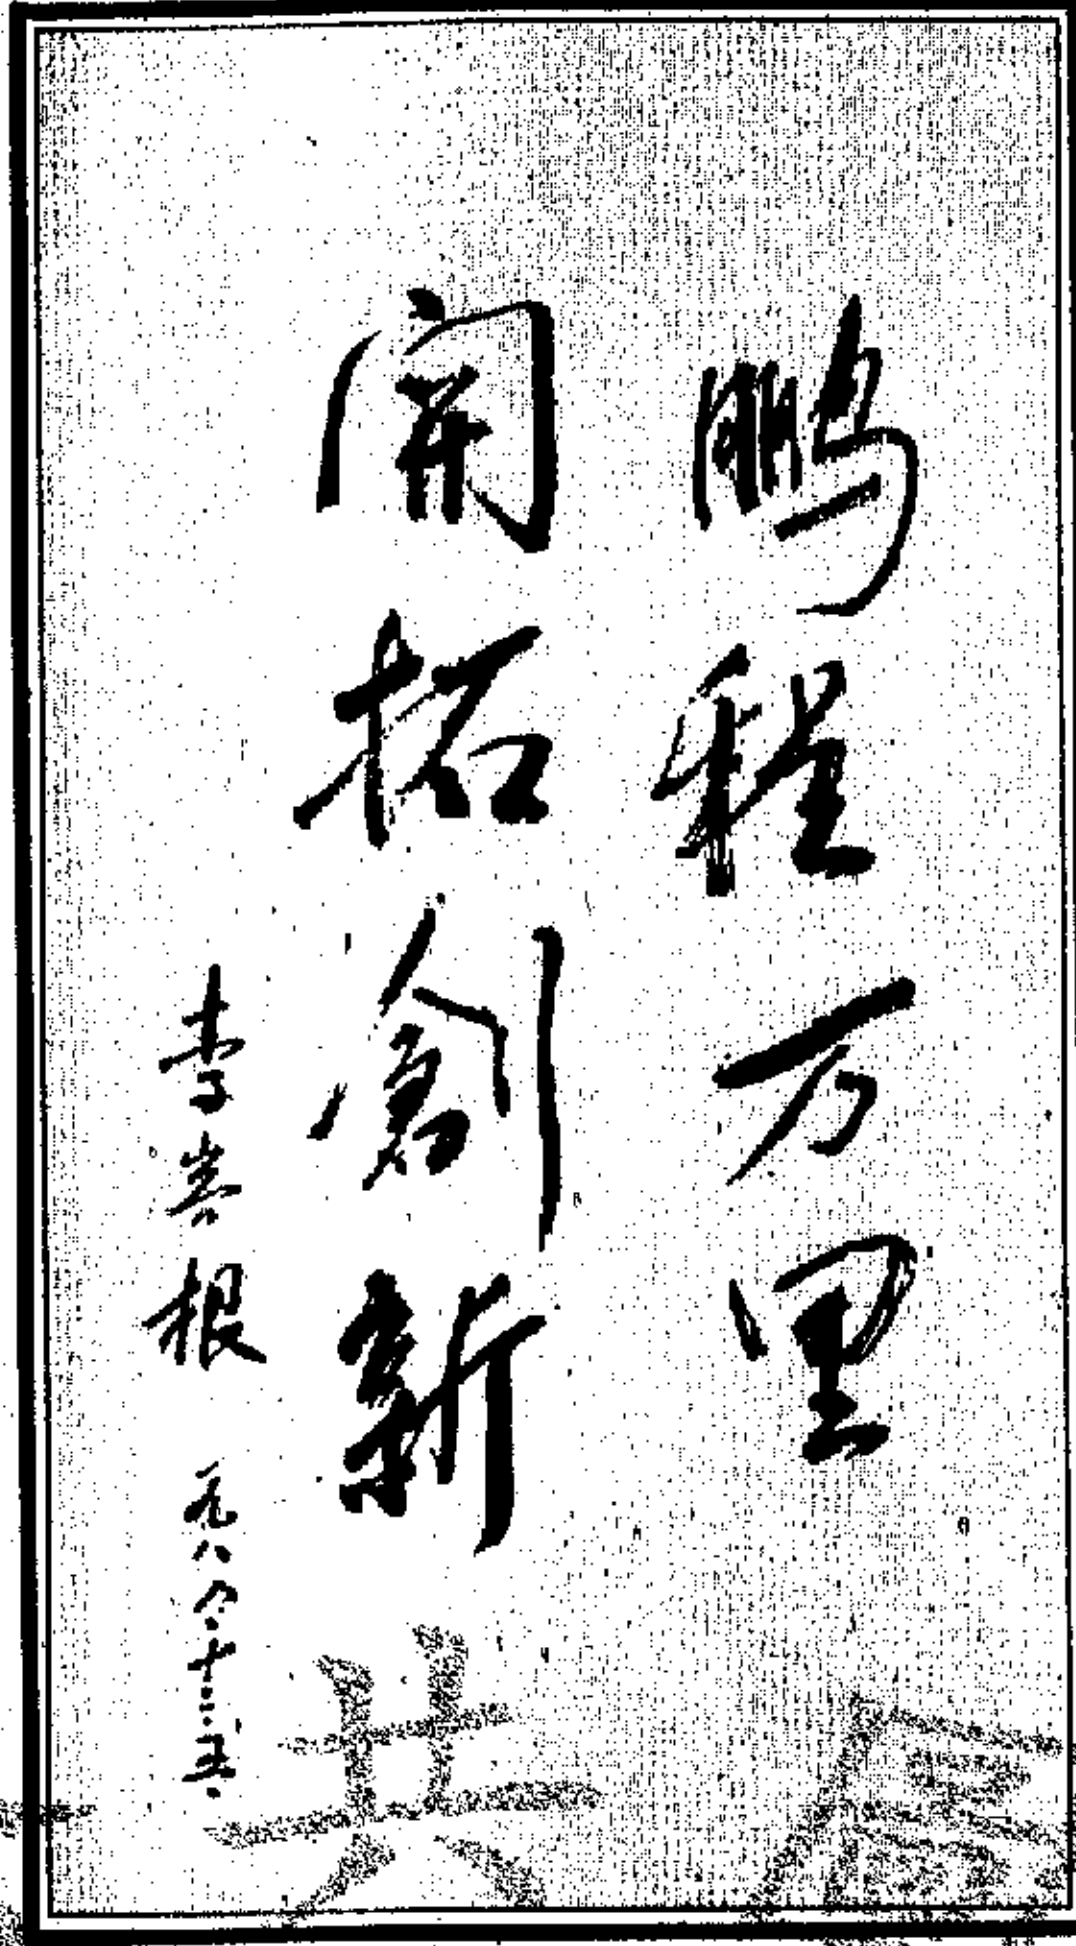 鹏程万里
開拓創新
李喜根
一九八八.十二.五.